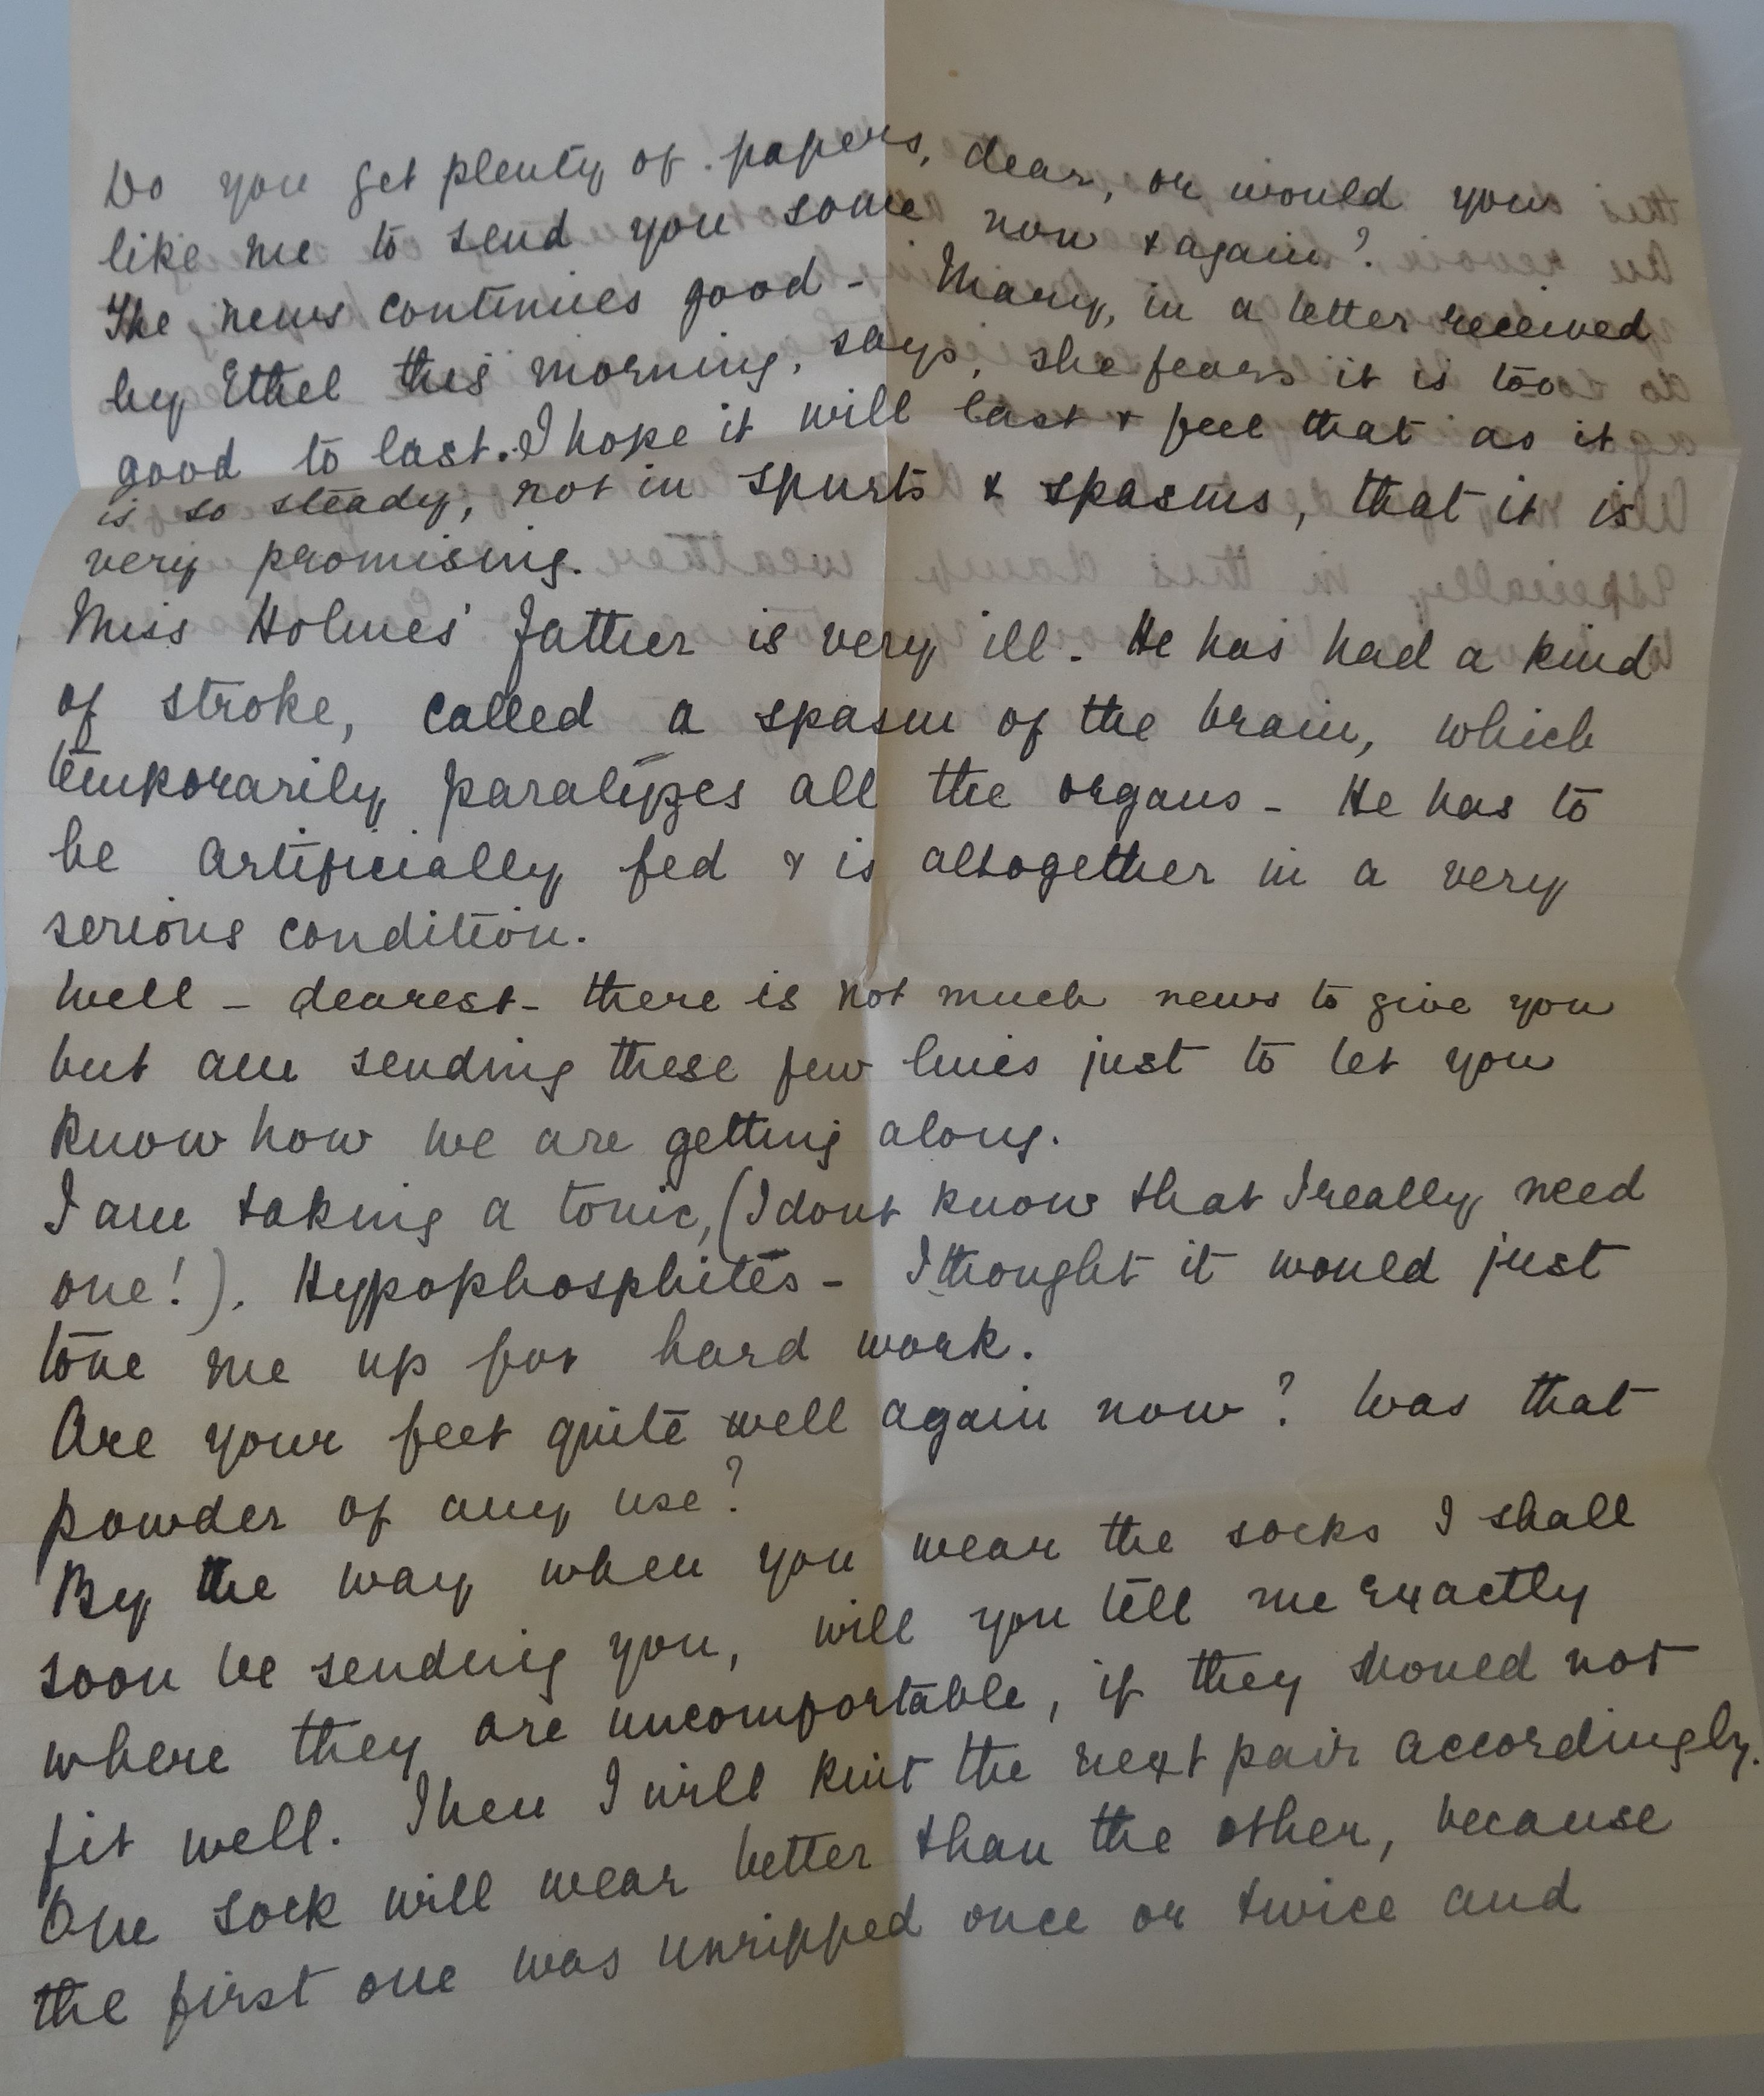 Do you get plenty of papers, dear, or would you
like me to send you some now & again?
The news continues good - Mary, in a letter received
by Ethel this morning, says, she fears it is too
good to last. I hope it will last & feel that as it
is so steady, not in spurts & spasms, that it is
very promising.
Miss Holmes' father is very ill. He has had a kind
of stroke, called a spasm of the brain, which
temporarily paralyzes all the organs - He has to
be artificially fed & is altogether in a very
serious condition.
Well - dearest - there is not much news to give you
but am sending these few lines just to let you
know how we are getting along.
I am taking a tonic, (I dont know that I really need
one!). Hypophosphites - I thought it would just
tone me up for hard work.
Are your feet quite well again now? Was that
powder of any use?
By the way when you wear the socks I shall
soon be sending you, will you tell me exactly
where they are uncomfortable, if they should not
fit well. Then I will knit the next pair accordingly.
One sock will wear better than the other, because
the first one was unripped once or twice and